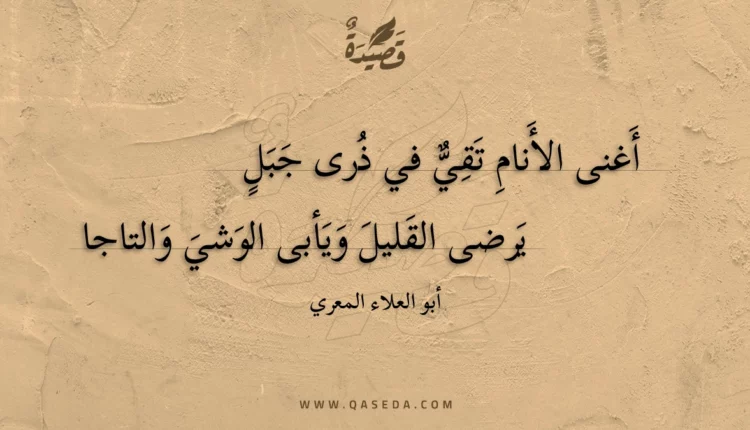 قَصِيدَةٌ
أَغنى الأَنامِ تَقِيٌّ في ذُرى جَبَلٍ
يَرضى القَليلَ وَيَأبى الوَشيَ وَالتاجا
أبو العلاء المعري
WWW.QASEDA.COM